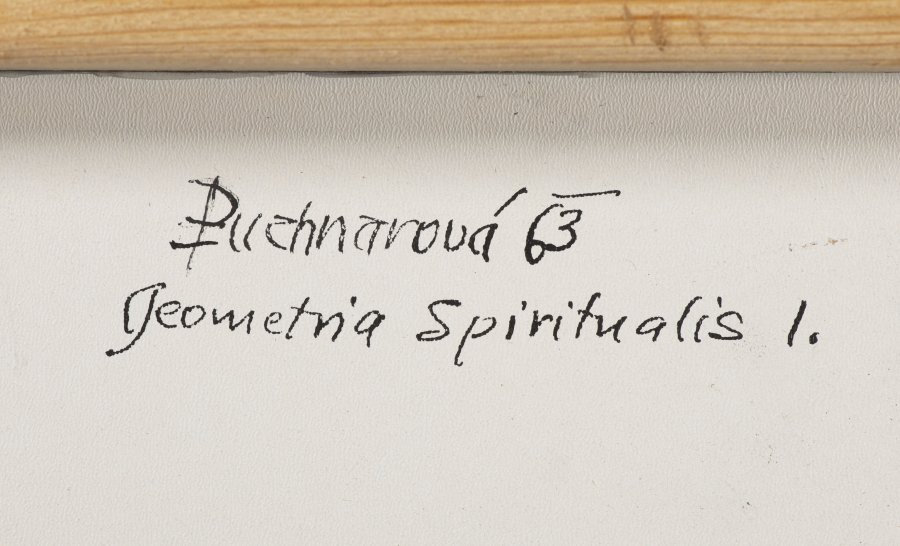 Puchnarová 63
Geometria Spiritualis I.